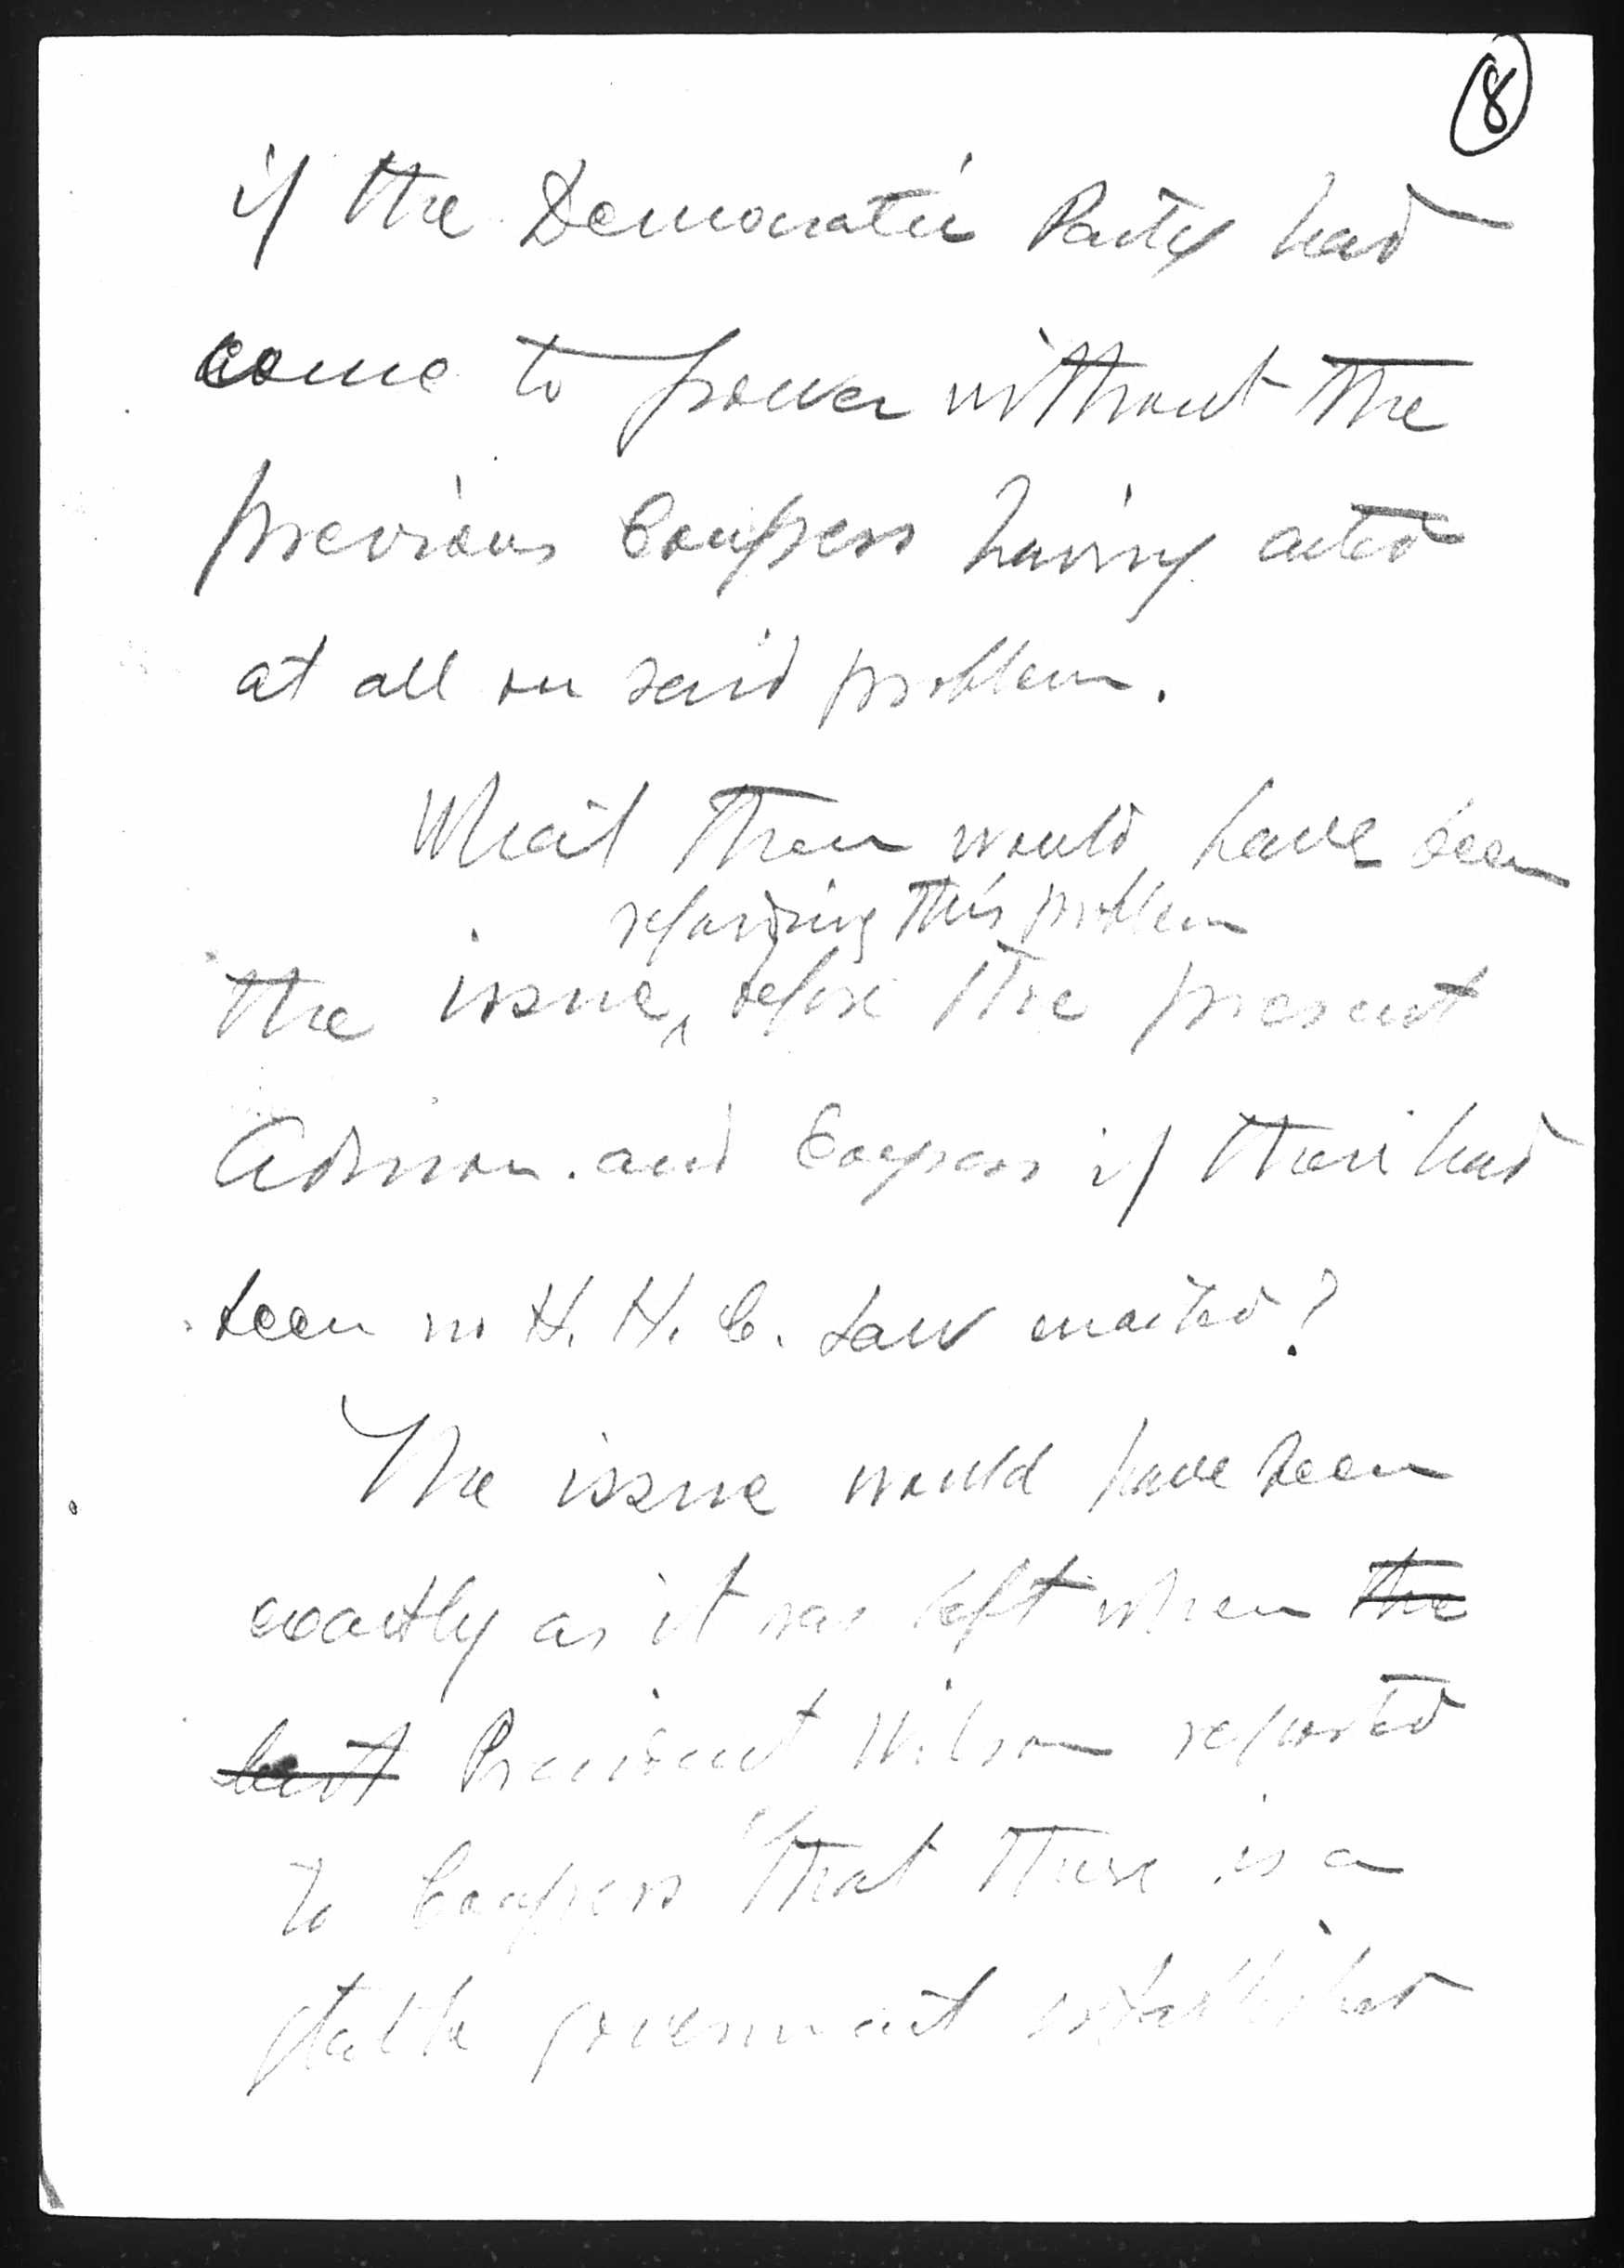 8
if the Democratic Party had
come to power without the
previous Congress having acted
at all on said problem.
What then would have been
regarding this problem
the issue, before the present
Admon. and Congress if there had
been no H. H. C. Law enacted?
The issue would have been
exactly as it was left when the
President Wilson reported
to Congress "that there is a
stable government established